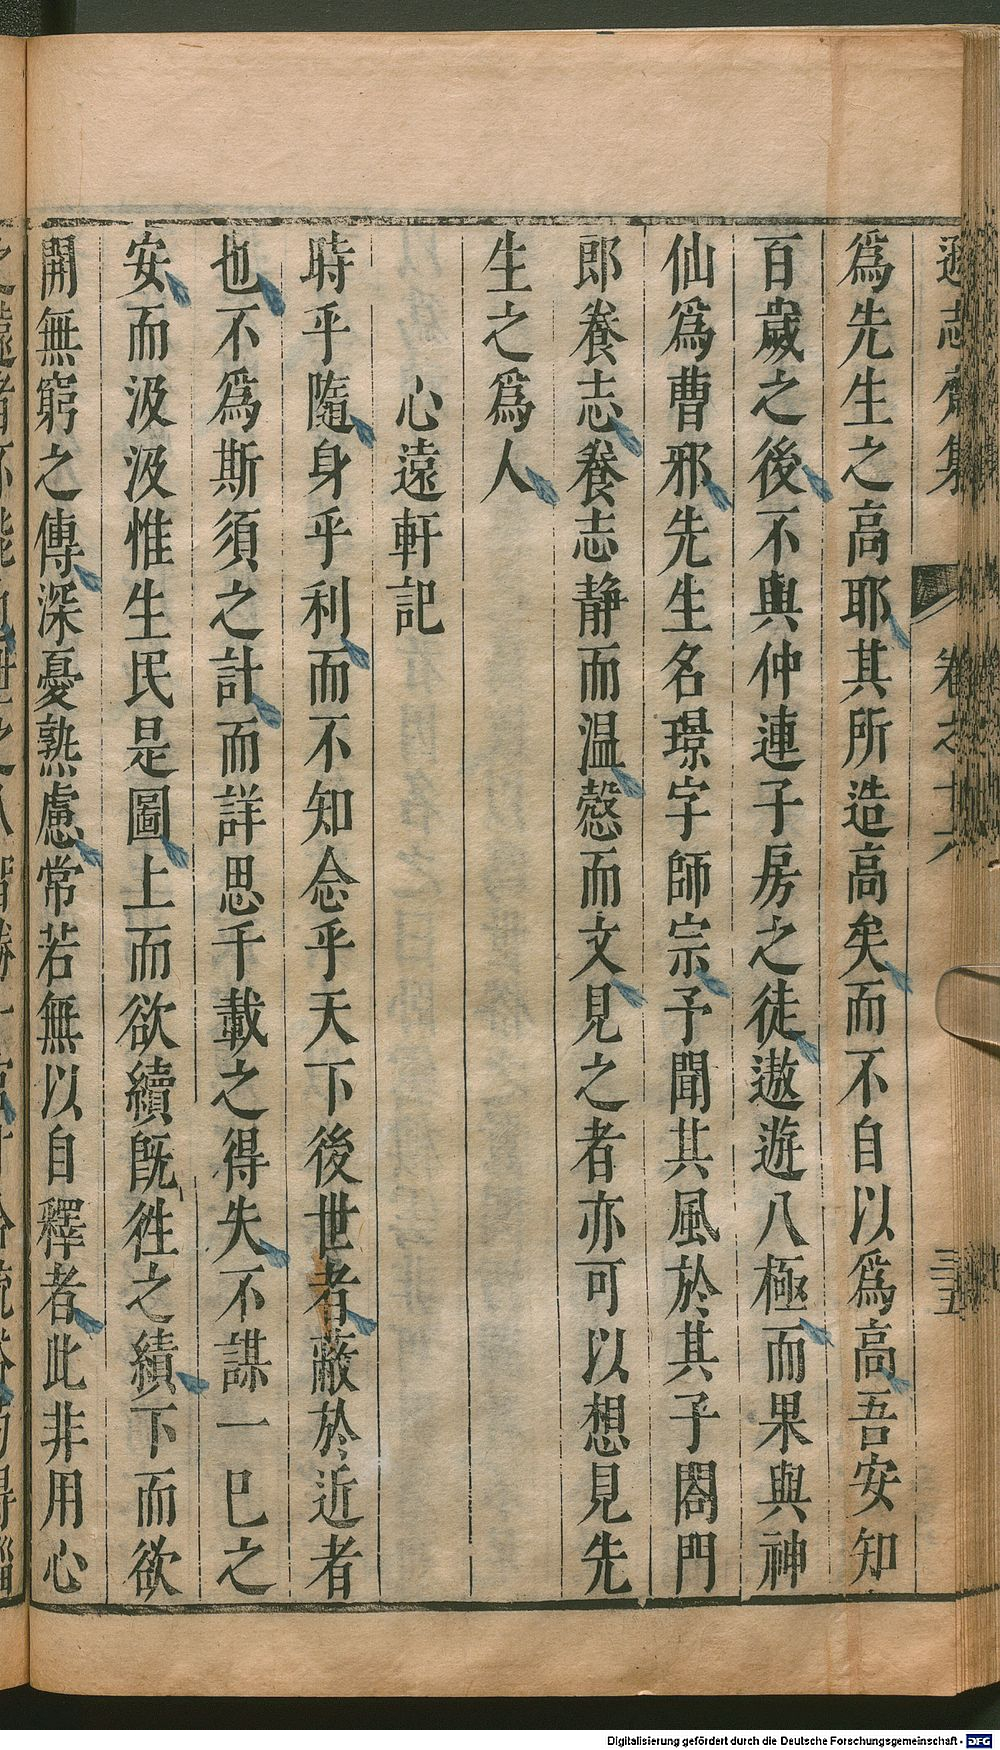 遜志齋集 卷之十六 三五
爲先生之高耶其所造高矣而不自以爲高吾安知
百歲之後不與仲連子房之徒遨遊八極而果與神
仙爲曹邪先生名璟字師宗予聞其風於其子閤門
郎養志養志静而温慤而文見之者亦可以想見先
生之爲人
心遠軒記
時乎隨身乎利而不知念乎天下後世者蔽於近者
也不爲斯須之計而詳思千載之得失不謀一已之
安而汲汲惟生民是圖上而欲續旣徃之績下而欲
開無窮之傳深憂熟慮常若無以自釋者此非用心
Digitalisierung gefördert durch die Deutsche Forschungsgemeinschaft - DFG